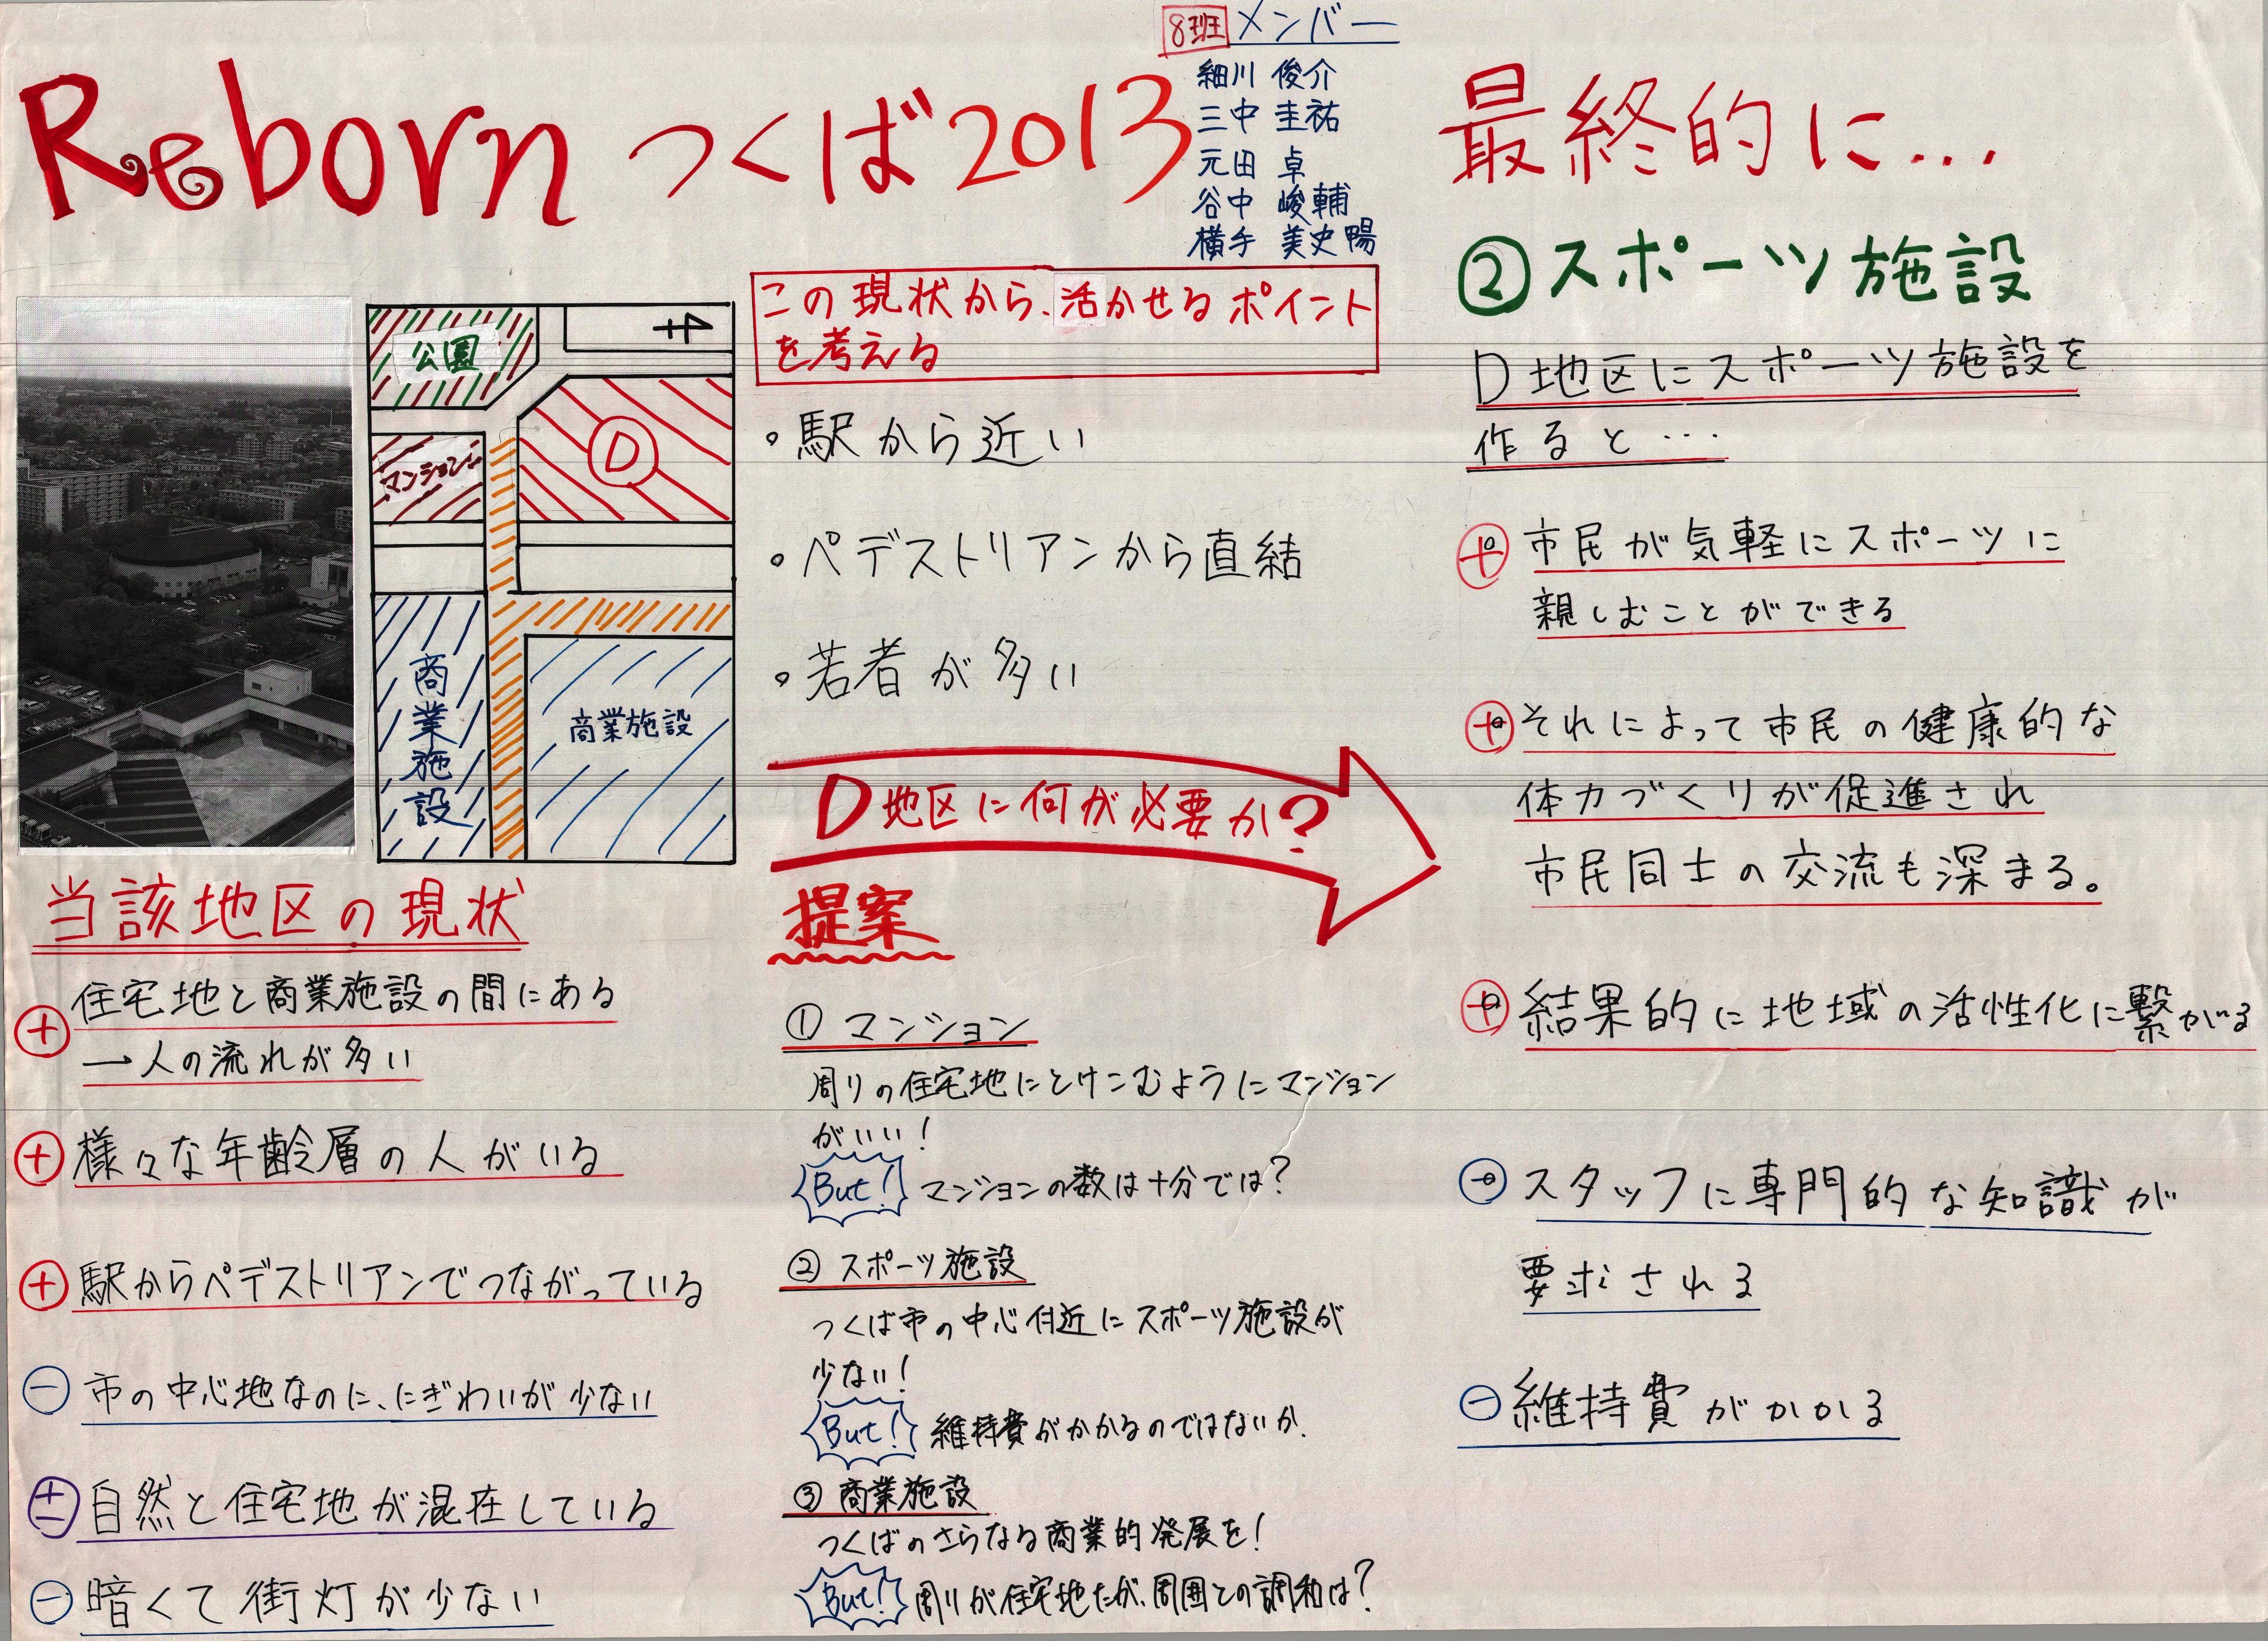 Rebornつくば2013
8班 メンバー
細川 俊介
三中 圭祐
元田 卓
谷中 峻輔
横手 美史暘
公園
4
マンション
D
商業施設
商業施設
当該地区の現状
⊕ 住宅地と商業施設の間にある
→人の流れが多い
⊕ 様々な年齢層の人がいる
⊕ 駅からペデストリアンでつながっている
⊖ 市の中心地なのに、にぎわいが少ない
± 自然と住宅地が混在している
⊖ 暗くて街灯が少ない
この現状から、活かせるポイント
を考える
・駅から近い
・ペデストリアンから直結
・若者が多い
D地区に何が必要か?
提案
① マンション
周りの住宅地にとけこむようにマンション
がいい!
But! マンションの数は十分では?
② スポーツ施設
つくば市の中心付近にスポーツ施設が
少ない!
But! 維持費がかかるのではないか.
③ 商業施設
つくばのさらなる商業的発展を!
But! 周りが住宅地だが、周囲との調和は?
最終的に…
②スポーツ施設
D地区にスポーツ施設を
作ると…
⊕ 市民が気軽にスポーツに
親しむことができる
⊕ それによって市民の健康的な
体力づくりが促進され
市民同士の交流も深まる。
⊕ 結果的に地域の活性化に繋がる
⊖ スタッフに専門的な知識が
要求される
⊖ 維持費がかかる